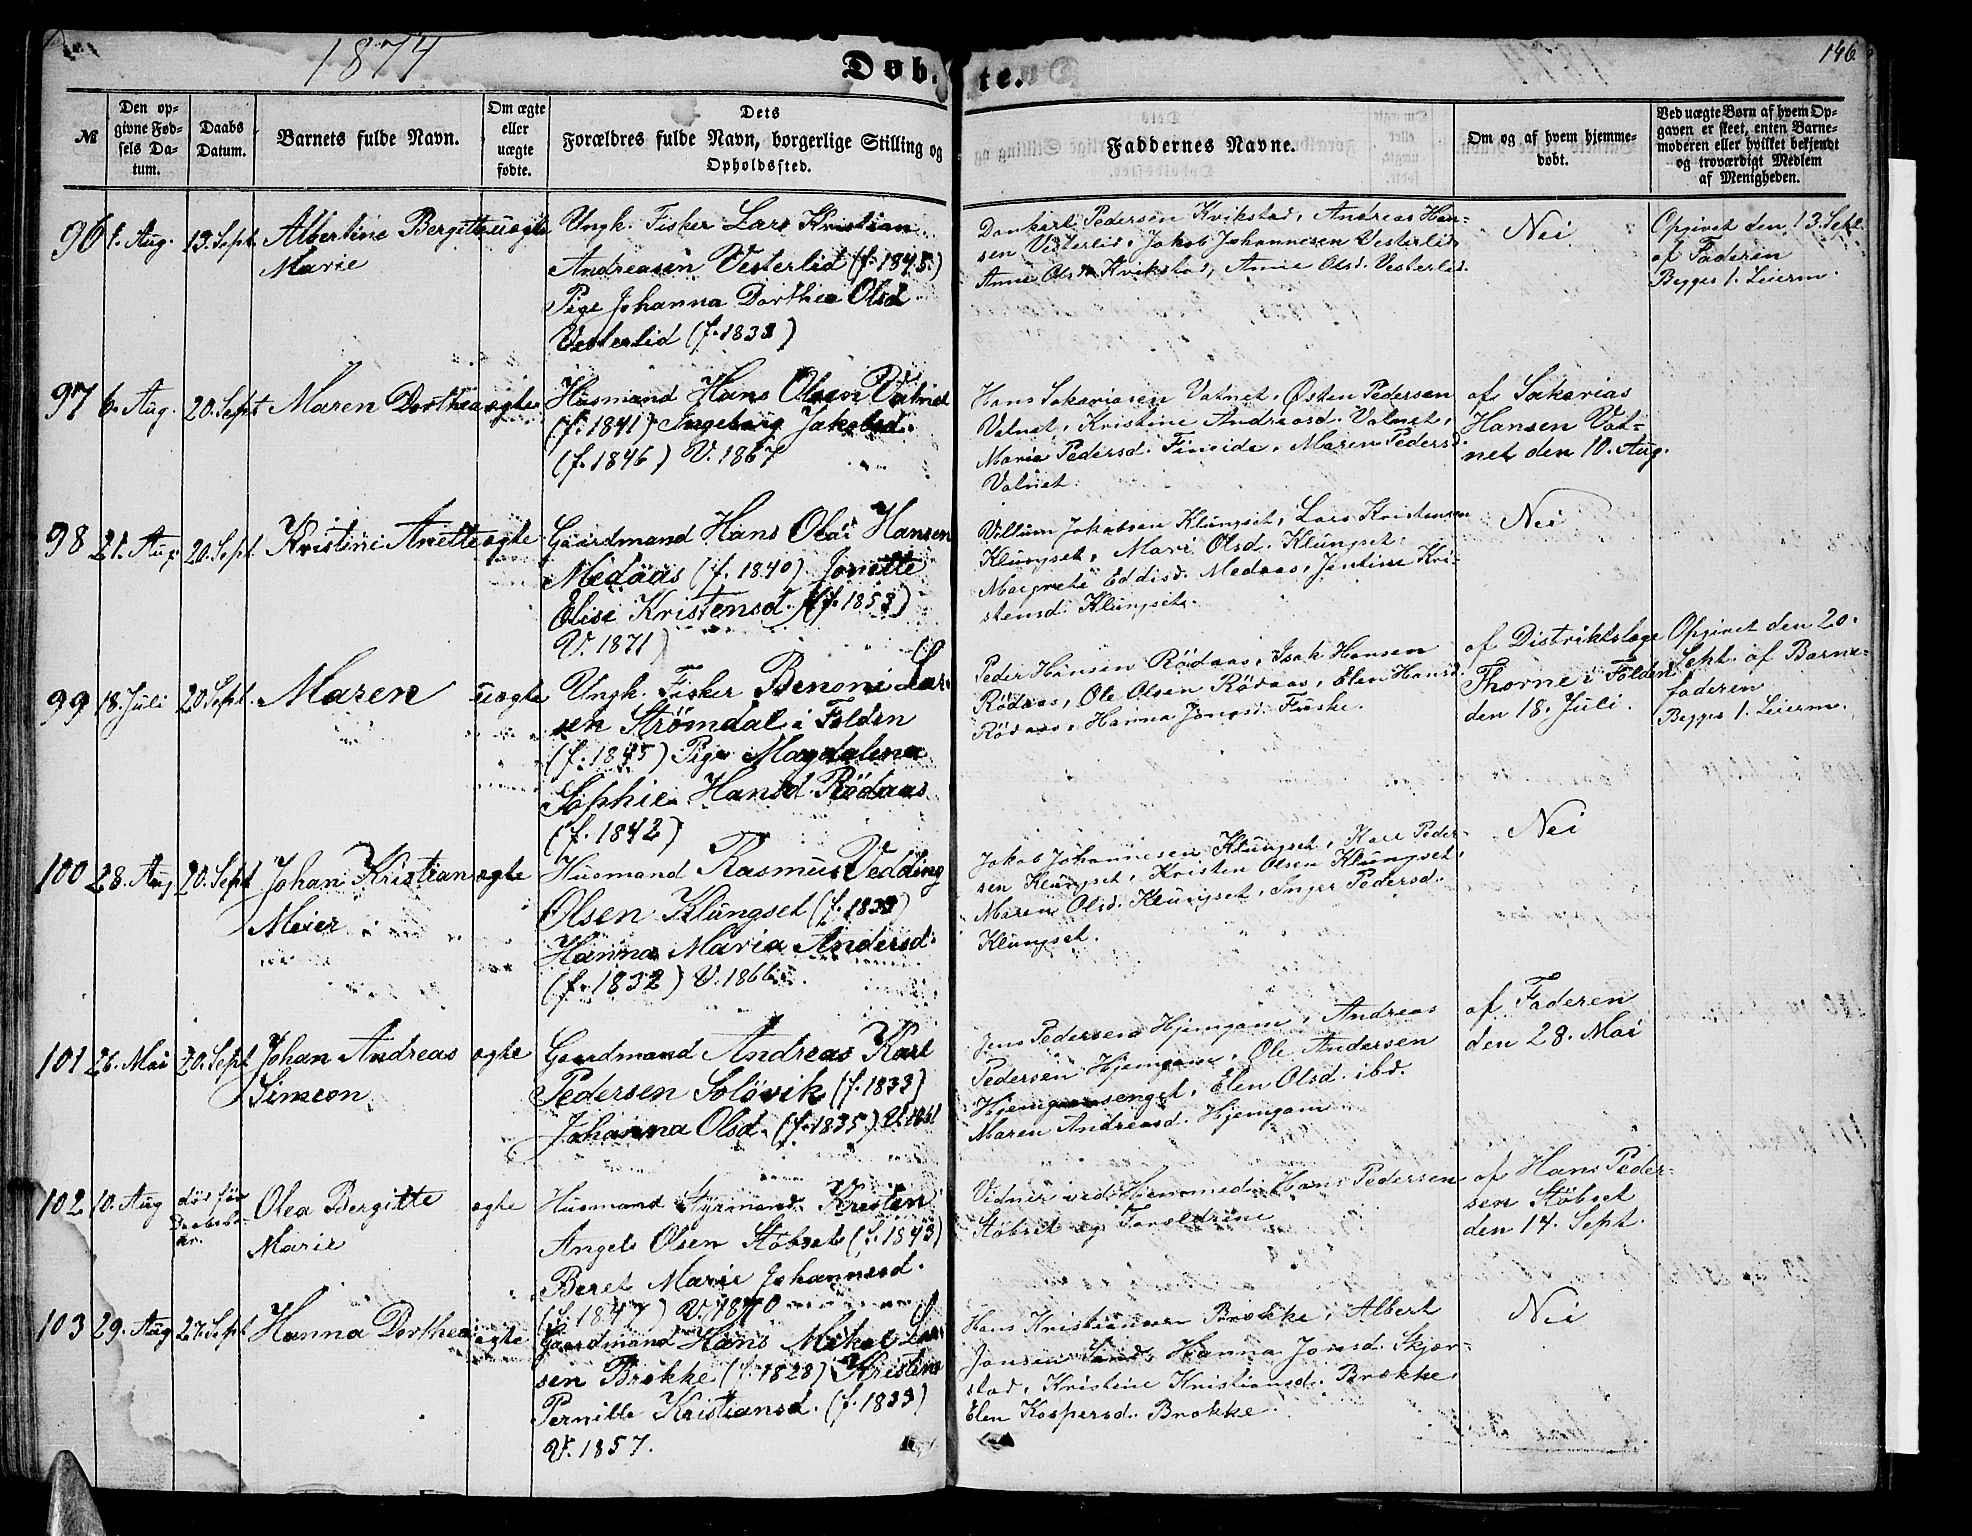 1874
Døb
te.
146
№
Den op-
givne Fød-
sels Da-
tum.
Daabs
Datum.
Barnets fulde Navn.
Om ægte
eller
uægte
fødte.
Dets
Forældres fulde Navn, borgerlige Stilling og
Opholdssted.
Faddernes Navne.
Om og af hvem hjemme-
døbt.
Ved uægte Børn af hvem Op-
gaven er skeet, enten Barne-
moderen eller hvilket bekjendt
og troværdigt Medlem
af Menigheden.
96
1. Aug.
13. Sept
Albertine Bergitte
Marie
uægte
Ungk. Fisker Lars Kristian
Andreasen Vesterlid (f. 1845.)
Pige Johanna Dorthea Olsd
Vesterlid (f. 1838)
Dankert Pedersen Kvikstad, Andreas Han-
sen Vesterlid, Jakob Johannesen Vesterlid
Anne Olsd. Kvikstad, Anne Olsd. Vesterlid.
Nei
Opgivet den 13. Sept.
af Faderen
Begges 1. Leierm.
97
6. Aug.
20. Sept
Maren Dorthea
ægte
Husmand Hans Olsen Vatnet
(f. 1841) Ingeborg Jakobsd.
(f. 1846) V. 1867
Hans Sakariasen Vatnet, Østen Pedersen
Vatnet, Kristine Andreasd. Vatnet,
Maria Pedersd. Fineide, Maren Pedersd.
Vatnet.
af Sakarias
Hansen Vat-
net den 10. Aug.
98
21. Aug.
20. Sept
Kristine Anette
ægte
Gaardmand Hans Olai Hansen
Medaas (f. 1840) Jonette
Elise Kristensd. (f. 1853)
V. 1871
Villum Jakobsen Klungset, Lars Kristensen
Klungset, Mari Olsd. Klungset,
Margrete Eddisd. Medaas, Jentine Kri-
stensd. Klungset.
Nei
99
18. Juli
20. Sept.
Maren
uægte
Ungk. Fisker Benoni Lar-
sen Strømdal i Folden
(f. 1845) Pige Magdalena
Sophie Hansd. Rødaas
(f. 1842)
Peder Hansen Rødaas, Isak Hansen
Rødaas, Ole Olsen Rødaas, Elen Hansd.
Rødaas, Hanna Jonasd. Fuske.
af Distriktslæge
Thorne i Folden
den 18. Juli.
Opgivet den 20.
Sept. af Barne-
faderen
Begges 1. Leierm.
100
28. Aug
20. Sept
Johan Kristian
Meier
ægte
Husmand Rasmus Vedding
Olsen Klungset (f. 1839)
Hanna Maria Andersd.
(f. 1832) V. 1866
Jakob Johannesen Klungset, Karl Peder-
sen Klungset, Kristen Olsen Klungset,
Maren Olsd. Klungset, Inger Pedersd.
Klungset.
Nei
101
26. Mai
20. Sept
Johan Andreas
Simeon
ægte
Gaardmand Andreas Karl
Pedersen Soløvik (f. 1833)
Johanna Olsd. (f. 1835) V. 1861
Jens Pedersen Hjemgam, Andreas
Pedersen Hjemgam, Ole Andersen
Hjemgamsenget, Elen Olsd. ibd.
Maren Andreasd. Hjemgam
af Faderen
den 28. Mai
102
10. Aug
død før
Olea Bergitte
Marie
ægte
Husmand Styrmand Kristen
Angel Olsen Støbset (f. 1843)
Beret Marie Johannesd.
(f. 1847) V. 1870
Vidner ved Hjemmed. Hans Pedersen
Støbset og Forældrene
af Hans Peder-
sen Støbset
den 14. Sept.
103
29. Aug
27. Sept
Hanna Dorthea
ægte
Gaardmand Hans Mikal Lar-
sen Brække (f. 1828) Kristine
Pernille Kristiansd. (f. 1833)
V. 1857.
Hans Kristiansen Brække, Albert
Jonsen Sand, Hanna Jonsd. Skjær-
stad, Kristine Kristiansd. Brække,
Elen Kaspersd. Brække.
Nei